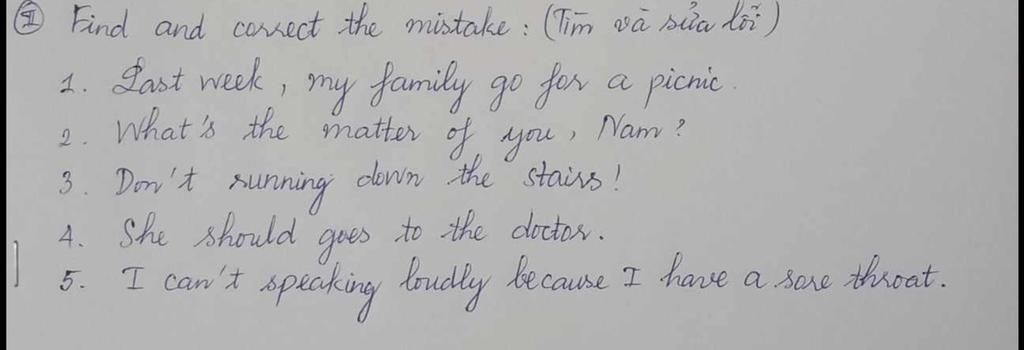 II Find and correct the mistake : (Tìm và sửa lỗi)
1. Last week, my family go for a picnic.
2. What's the matter of you, Nam?
3. Don't running down the stairs!
4. She should goes to the doctor.
5. I can't speaking loudly because I have a sore throat.